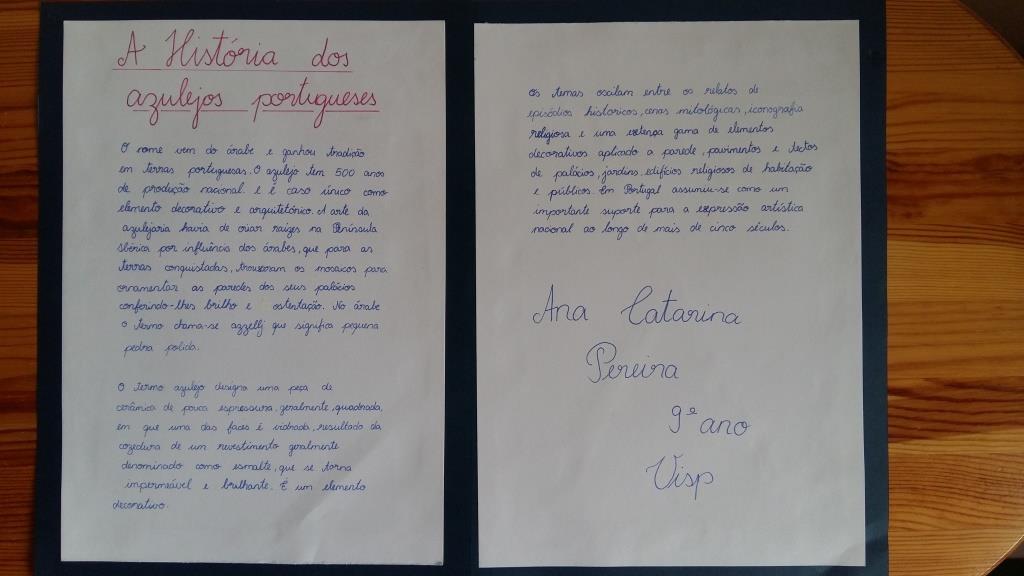 A História dos
azulejos portugueses
O nome vem do árabe e ganhou tradição
em terras portuguesas. O azulejo tem 500 anos
de produção nacional e é caso único como
elemento decorativo e arquitetónico. A arte da
azulejaria havia de criar raízes na Península
Ibérica por influência dos árabes, que para as
terras conquistadas, trouxeram os mosaicos para
ornamentar as paredes dos seus palácios
conferindo-lhes brilho e ostentação. No árabe
o termo chama-se azzellj que significa pequena
pedra polida.
O termo azulejo designa uma peça de
cerâmica de pouca espressura, geralmente, quadrada,
em que uma das faces é vidrada, resultado da
cozedura de um revestimento geralmente
denominado como esmalte, que se torna
impermeável e brilhante. É um elemento
decorativo.
Os temas oscilam entre os relatos de
episódios historicos, cenas mitológicas, iconografia
religiosa e uma extença gama de elementos
decorativos aplicado a parede, pavimentos e tectos
de palácios, jardins, edifícios religiosos de habitação
e públicos. Em Portugal assumiu-se como um
importante suporte para a expressão artística
nacional ao longo de mais de cinco séculos.
Ana Catarina
Pereira
9º ano
Visp